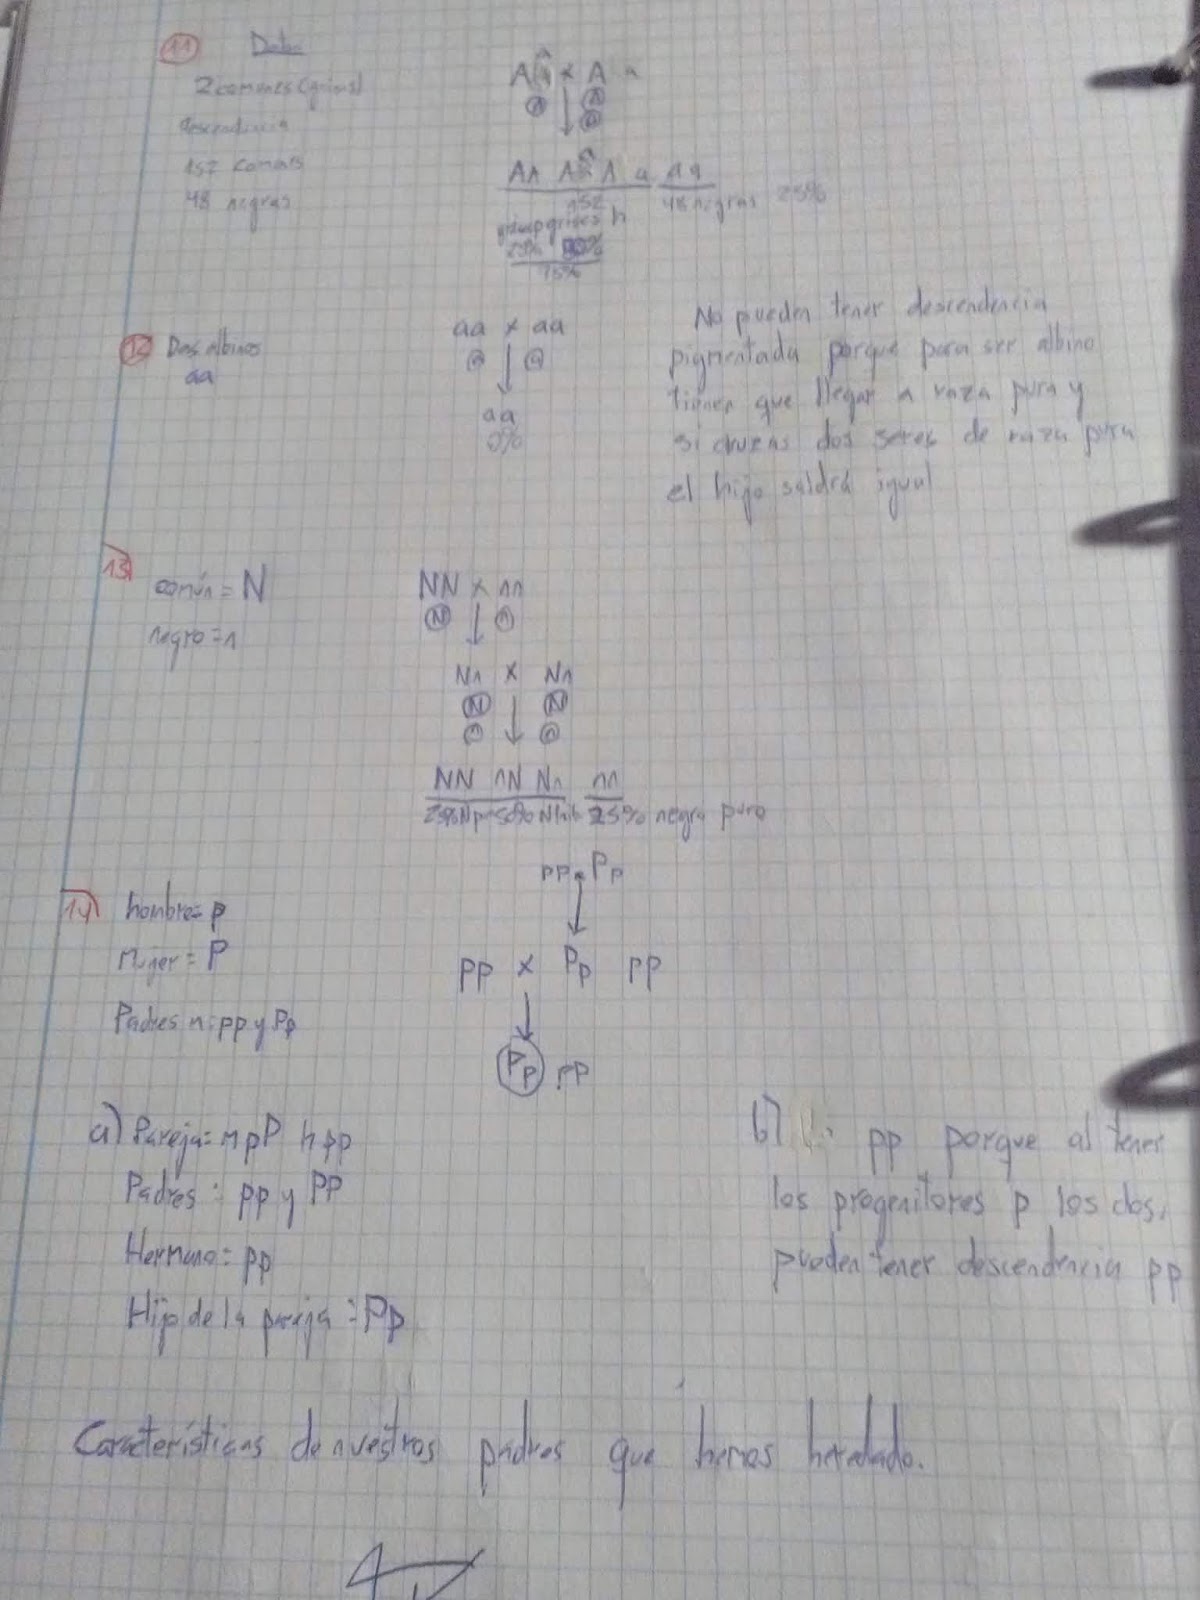 11 Datos
2 comunes (grises)
descendencia
152 comunes
48 negras
Aa x A a
Aa aa
152 48 negras 25%
grises p grises h
25% 50%
75%
12 Dos albinos
aa
aa x aa
a a
aa
0%
No pueden tener descendencia
pigmentada porque para ser albino
tienen que llegar a raza pura y
si cruzas dos seres de raza pura
el hijo saldrá igual
13
común = N
negro = n
NN x nn
N n
Nn x Nn
N N
n n
NN nN Nn nn
25% N puros 50% N hib 25% negro puro
14 hombre = p
Mujer = P
Padres m: pp y Pp
pp x Pp
pp x Pp pp
Pp pp
a) Pareja = m pP h pp
Padres : pp y PP
Hermano = pp
Hijo de la pareja = Pp
b) pp porque al tener
los progenitores p los dos,
pueden tener descendencia pp
Características de nuestros padres que hemos heredado.